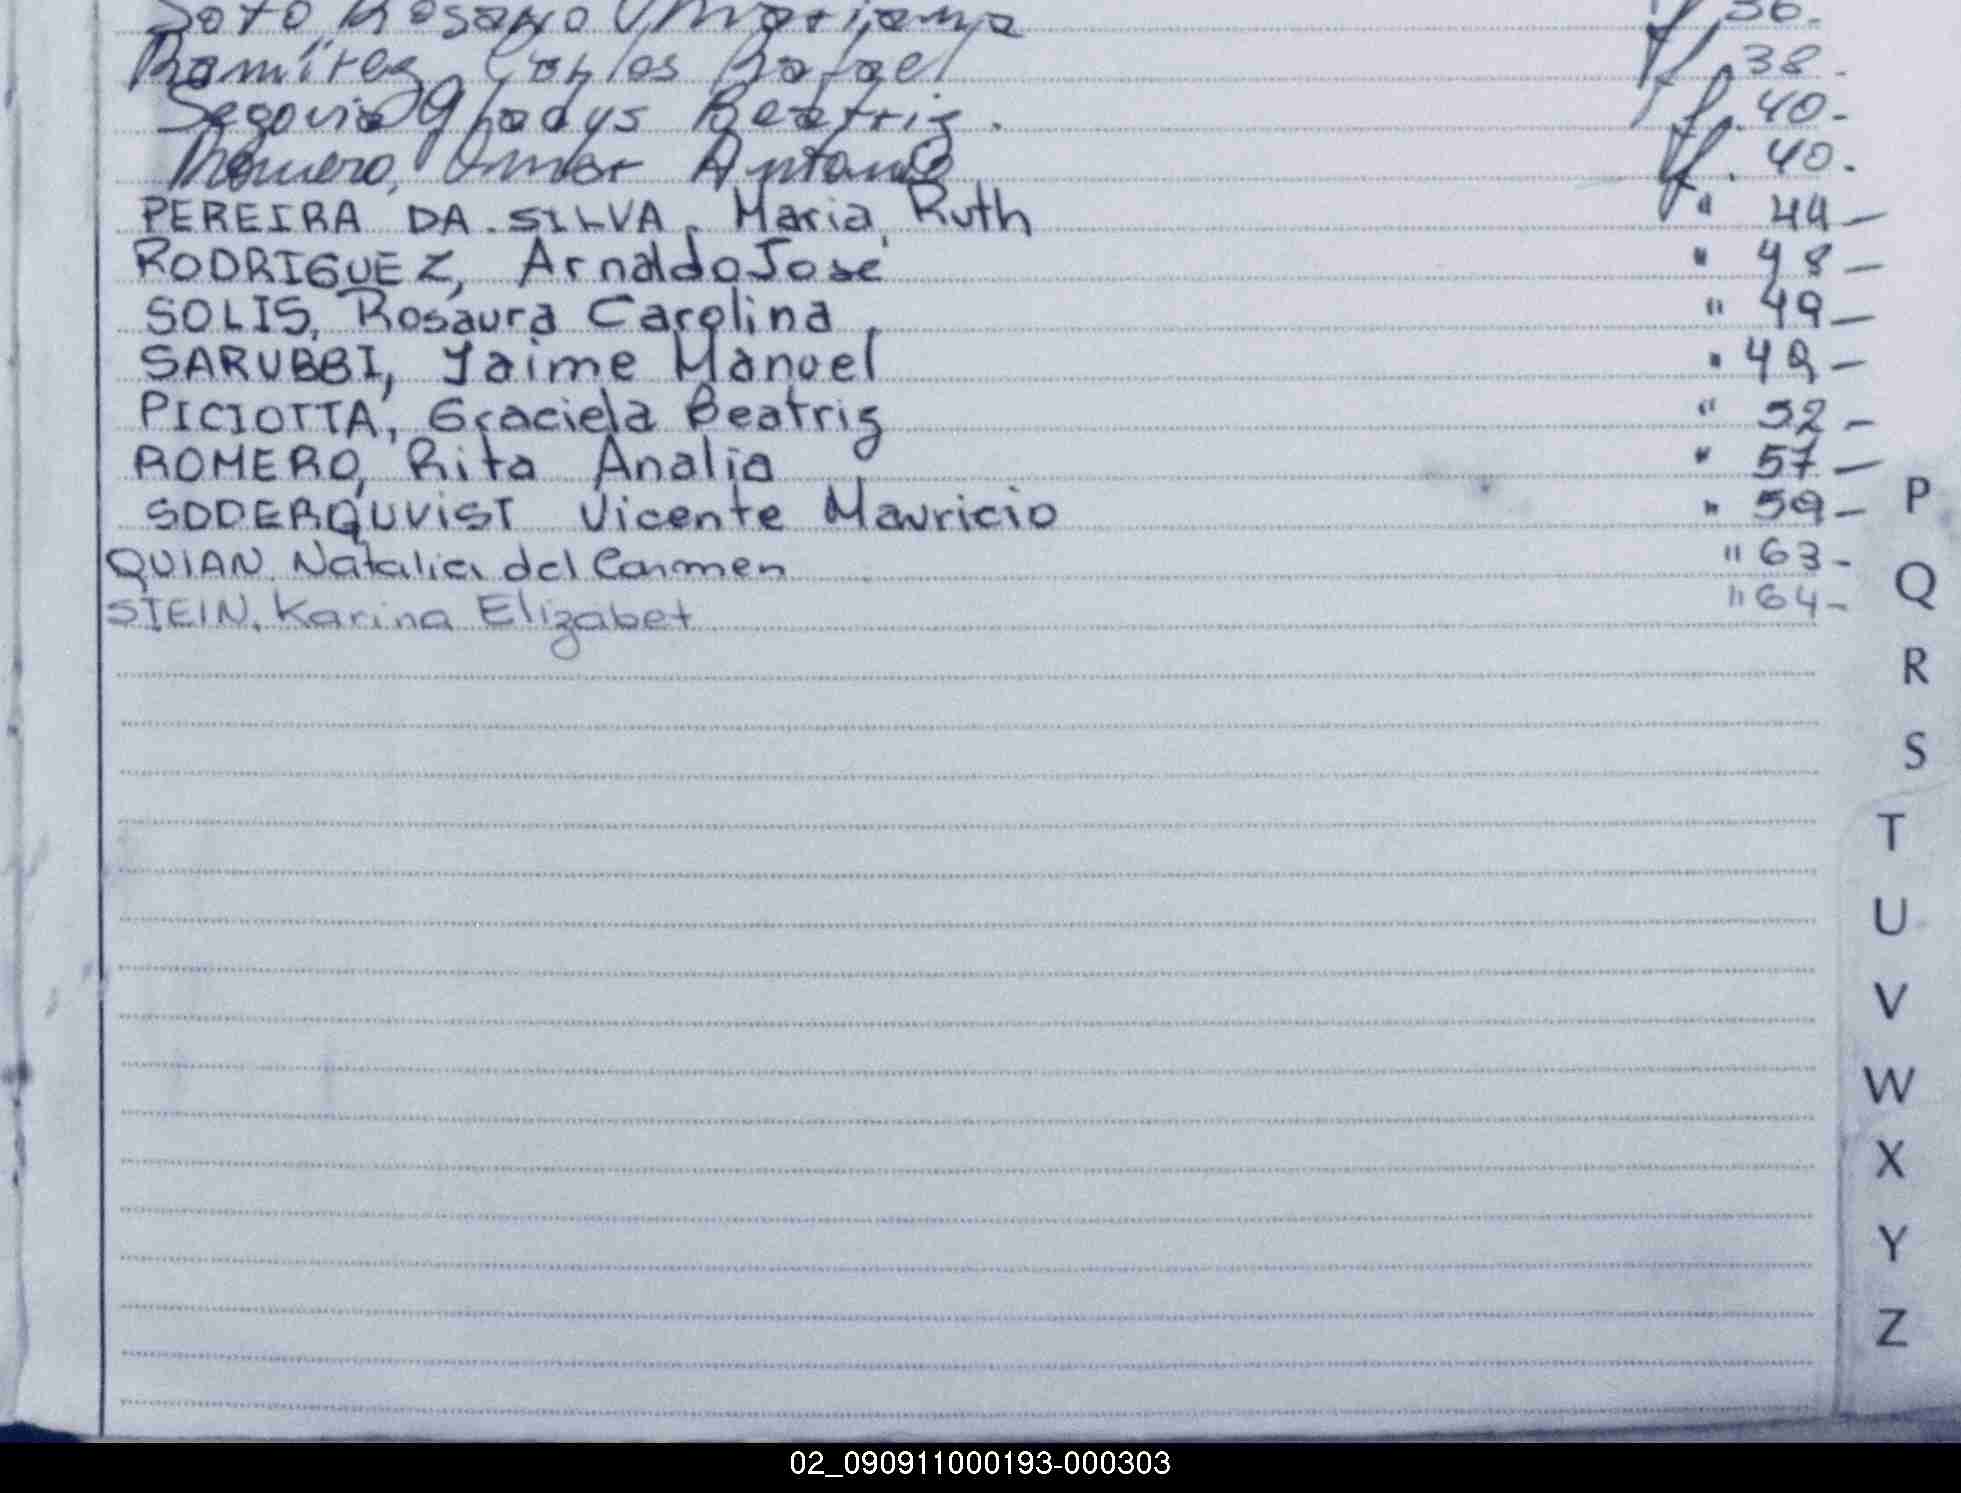 Soto Rosario Mariana ff. 36.
Ramírez Carlos Rafael ff. 38.
Segovia Gladys Beatriz. ff. 40.
Romero, Omar Antonio ff. 40.
PEREIRA DA SILVA, Maria Ruth " 44-
RODRIGUEZ, Arnaldo José " 48-
SOLIS, Rosaura Carolina, " 49-
SARUBBI, Jaime Manuel " 49-
PICIOTTA, Graciela Beatriz " 52-
ROMERO, Rita Analia " 57-
SODERQUVIST Vicente Mauricio " 59-
QUIAN, Natalia del Carmen " 63-
STEIN, Karina Elizabet " 64-
P
Q
R
S
T
U
V
W
X
Y
Z
02_090911000193-000303